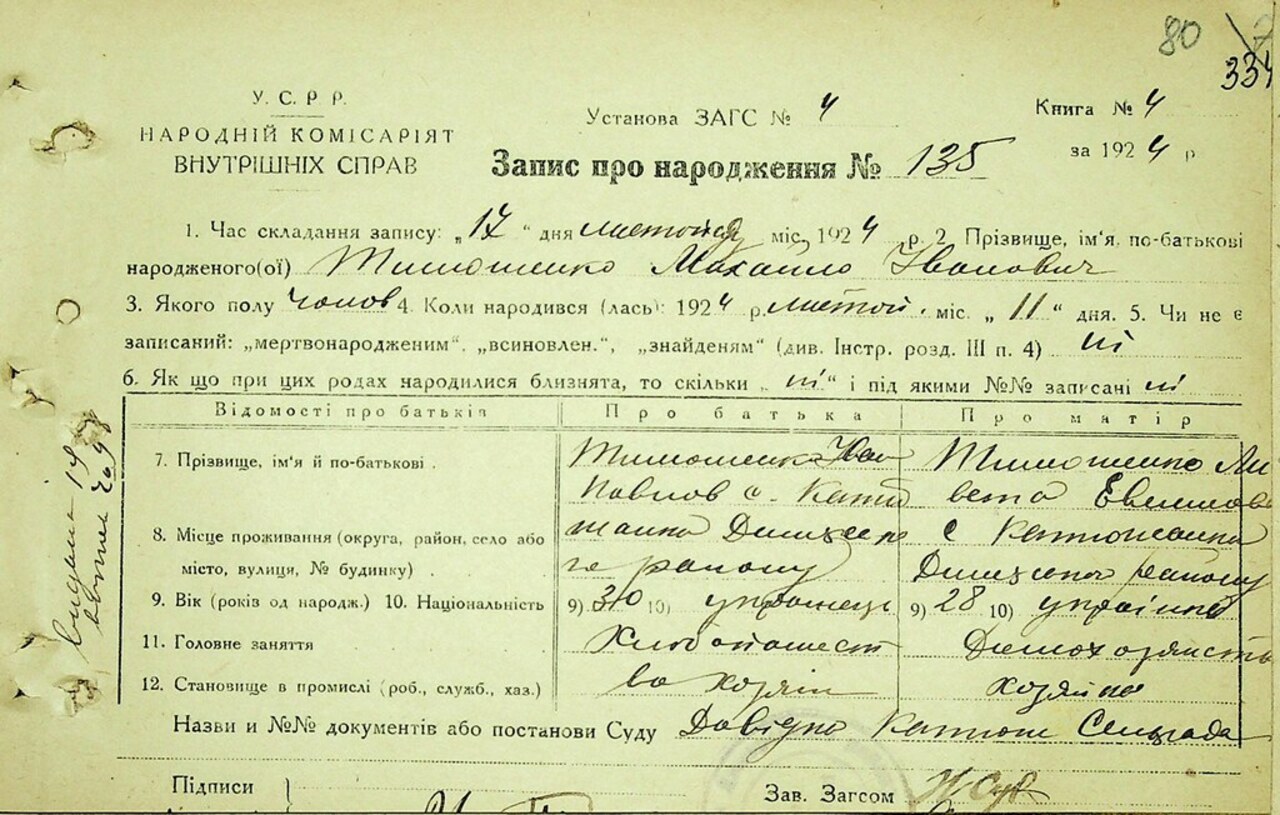 80
334
У. С. Р Р.
НАРОДНІЙ КОМІСАРІЯТ
ВНУТРІШНІХ СПРАВ
Установа ЗАГС № 4
Книга № 4
за 1924 р
Запис про народження № 135
1. Час складання запису: „17" дня листопад міс. 1924 р. 2. Прізвище, ім'я, по-батькові
народженого(ої) Тимошенко Михайло Іванович
3. Якого полу чолов 4. Коли народився (лась): 1924 р. листоп. міс. „11" дня. 5. Чи не є
записаний: „мертвонародженим", „всиновлен.", „знайденям" (див. Інстр. розд. III п. 4) ні
6. Як що при цих родах народилися близнята, то скільки „ні" і під якими №№ записані ні
Відомості про батьків Про батька Про матір
7. Прізвище, ім'я й по-батькові . Тимошенко Іван Тимошенко Ли
Павлов с. Катю вета
8. Місце проживання (округа, район, село або жанка с Катюжанка
місто, вулиця, № будинку) . . го району району
9. Вік (років од народж.) 10. Національність 9) 30 10) українець 9) 28 10) українка
11. Головне заняття
12. Становище в промислі (роб., служб., хаз.) во хозяїн хозяйка
Назви и №№ документів або постанови Суду Довідка Катюж Сельрада
Підписи
Зав. Загсом